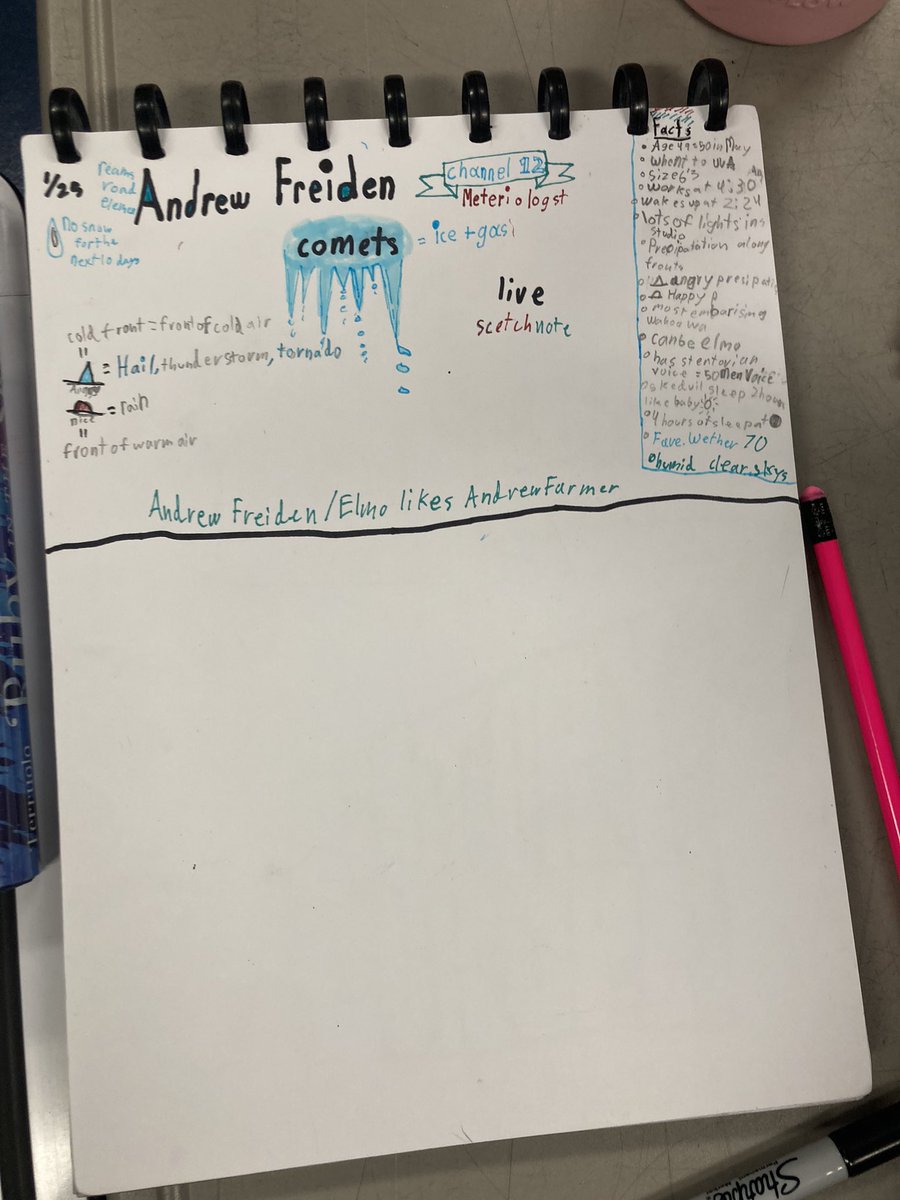 1/25
Reams
road
elemen
Andrew Freiden
channel 12
Meteriologst
No snow
for the
next 10 days
comets = ice + gas
live
scetchnote
cold front = front of cold air
"
= Hail, thunderstorm, tornado
Angry
= rain
nice
"
front of warm air
Facts
Age 49 = 50 in May
whent to UVA
Size 6'3
works at 4:30 AM
wakes up at 2:24
lots of lights in
studio
Precipatation along
fronts
angry presipati
Happy P
most embarising
wakoa wa
can be elmo
has stentorian
voice = 50 Men Voice
sleep 2 hours
like baby
4 hours of sleep at
Fave. Wether 70
humid clear skys
Andrew Freiden/Elmo likes Andrew Farmer
Ferruolo
Sharpie